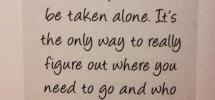 be taken alone. It's
the only way to really
figure out where you
need to go and who